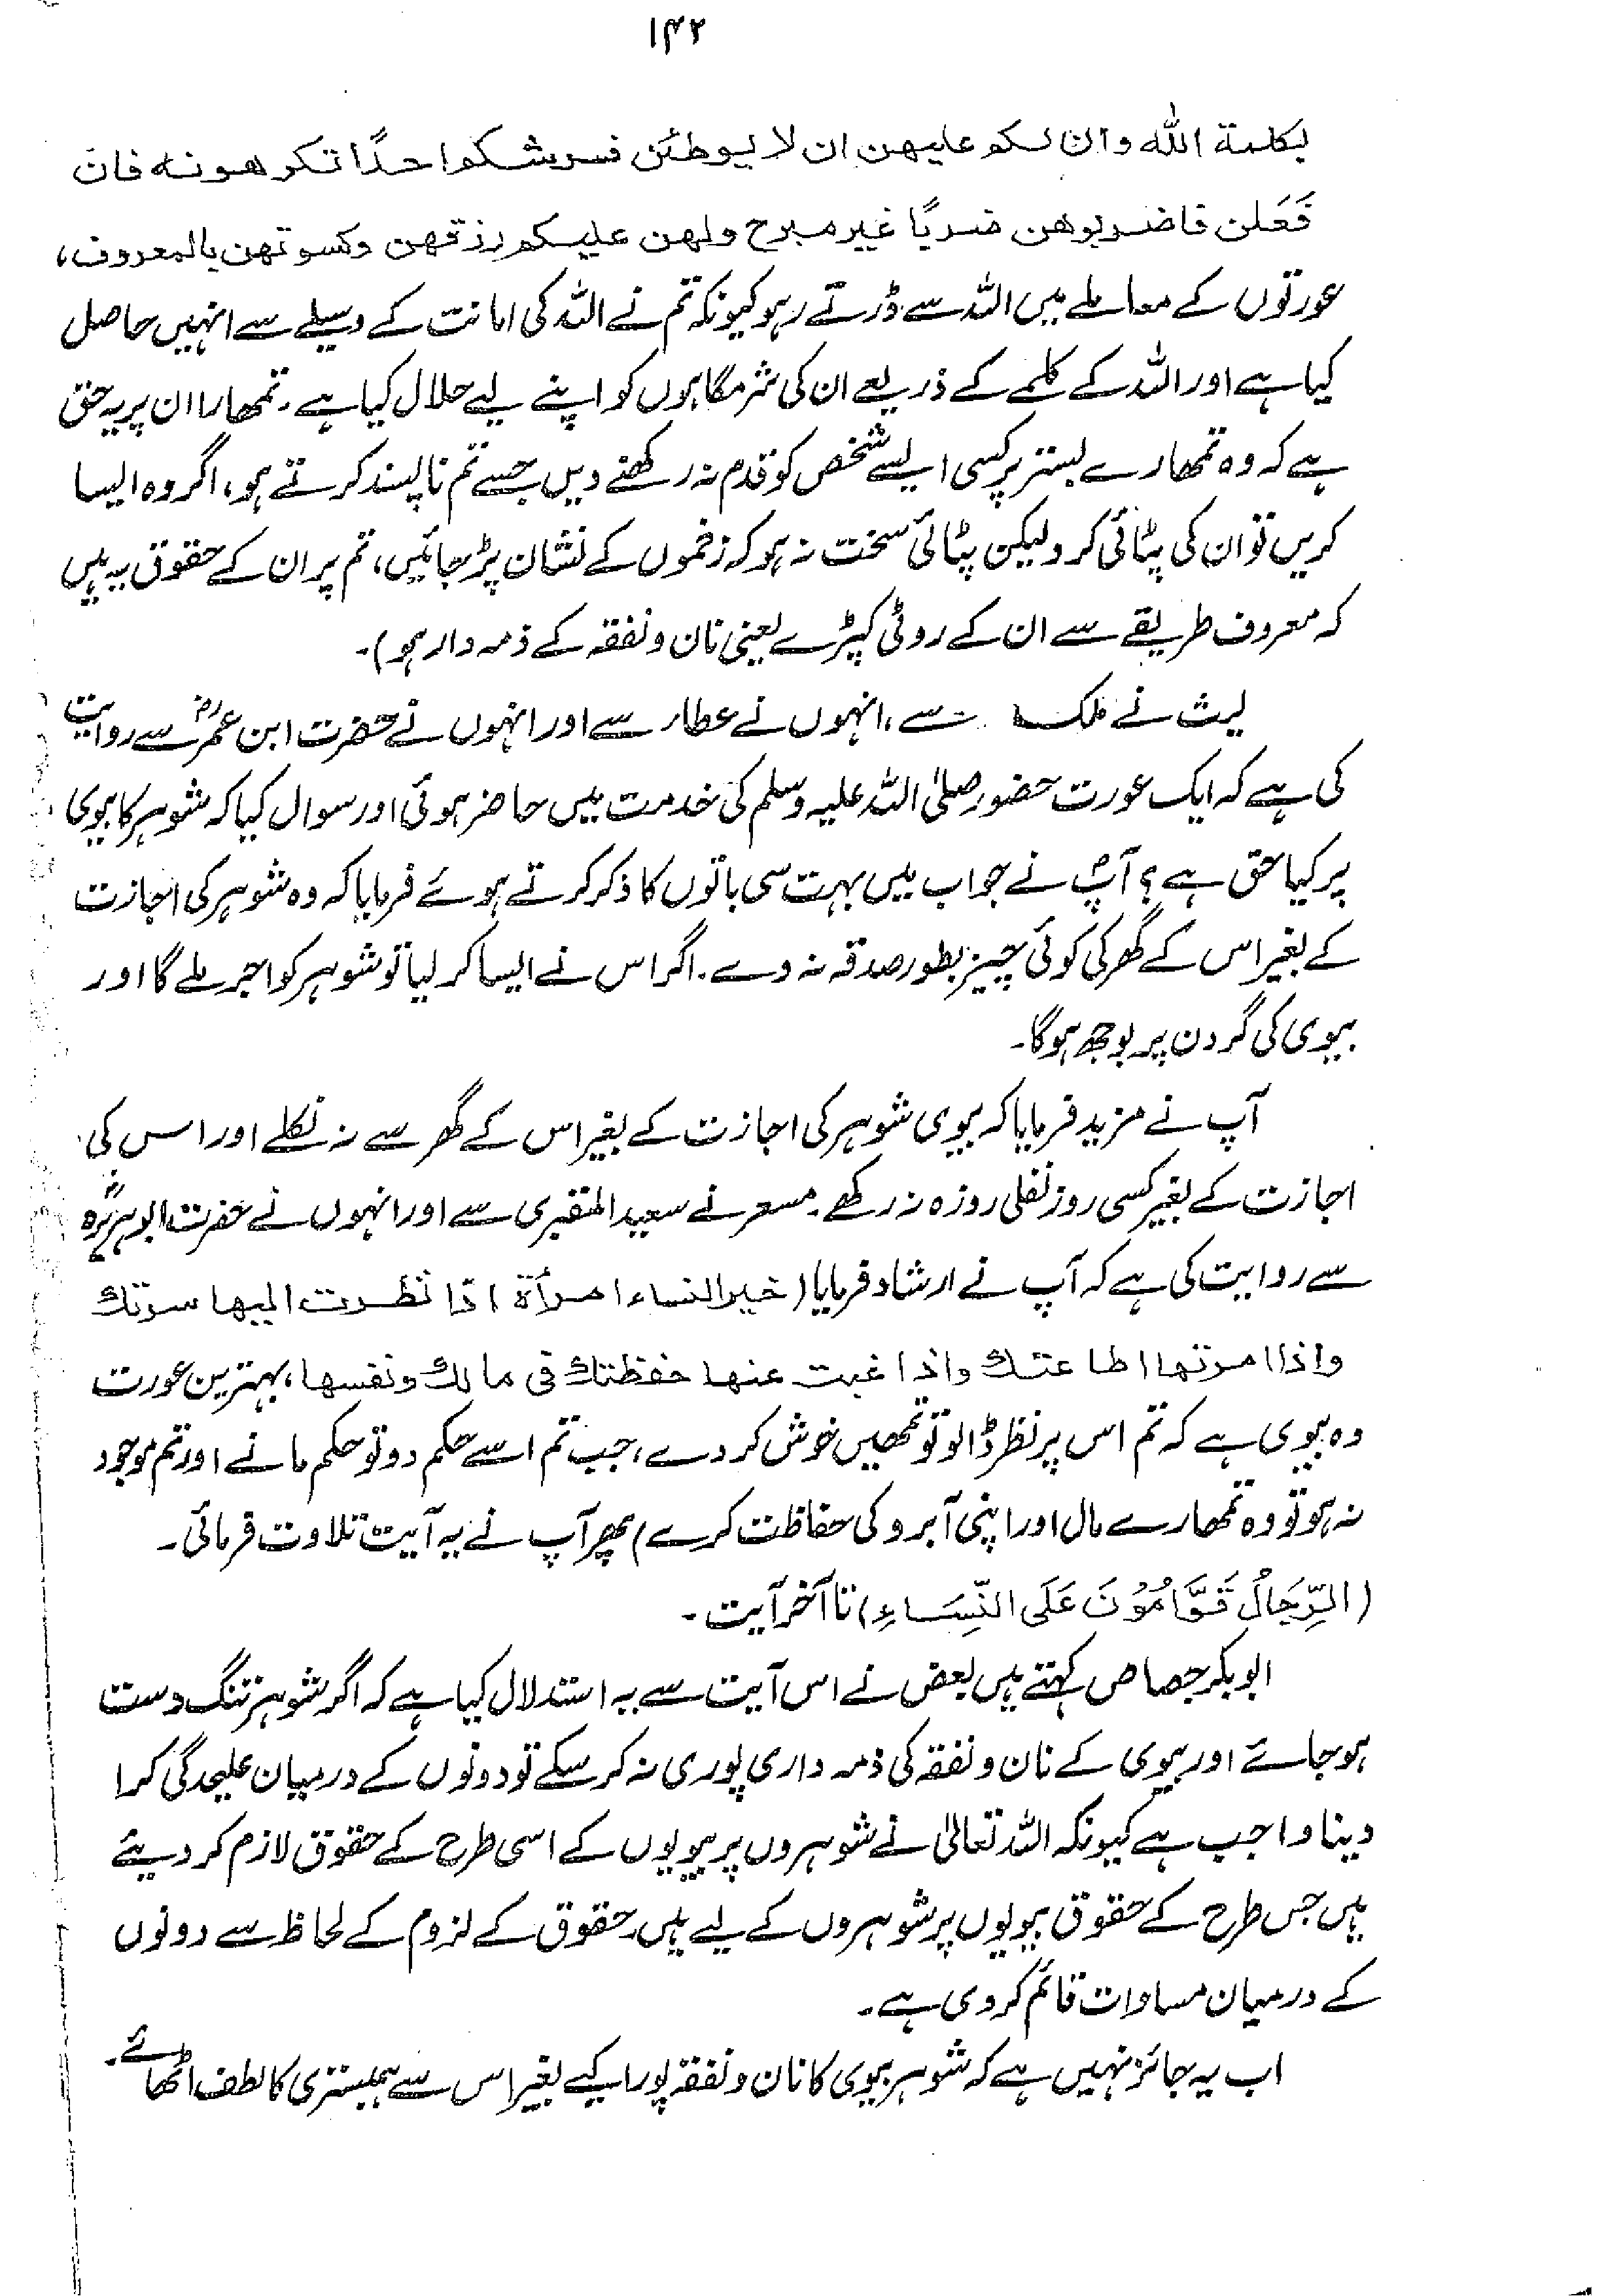 ۱۴۲
بكلمة الله وان لكم عليهن ان لا يوطئن فرشكم احدًا تكرهونه فان
فَعَلن فاضربوهن ضربًا غير مبرح ولهن عليكم رزقهن وكسوتهن بالمعروف،
عورتوں کے معاملے میں اللہ سے ڈرتے رہو کیونکہ تم نے اللہ کی امانت کے وسیلے سے انہیں حاصل
کیا ہے اور اللہ کے کلمے کے ذریعے ان کی شرمگاہوں کو اپنے لیے حلال کیا ہے۔ تمھارا ان پر یہ حق
ہے کہ وہ تمھارے بستر پر کسی ایسے شخص کو قدم نہ رکھنے دیں جسے تم ناپسند کرتے ہو، اگر وہ ایسا
کریں تو ان کی پٹائی کرو لیکن پٹائی سخت نہ ہو کہ زخموں کے نشان پڑ جائیں، تم پر ان کے حقوق یہ ہیں
کہ معروف طریقے سے ان کے روٹی کپڑے یعنی نان و نفقہ کے ذمہ دار ہو)۔
لیث نے ملک سے، انہوں نے عطار سے اور انہوں نے حضرت ابن عمرؓ سے روایت
کی ہے کہ ایک عورت حضور صلی اللہ علیہ وسلم کی خدمت میں حاضر ہوئی اور سوال کیا کہ شوہر کا بیوی
پر کیا حق ہے؟ آپؐ نے جواب میں بہت سی باتوں کا ذکر کرتے ہوئے فرمایا کہ وہ شوہر کی اجازت
کے بغیر اس کے گھر کی کوئی چیز بطور صدقہ نہ دے۔ اگر اس نے ایسا کر لیا تو شوہر کو اجر ملے گا اور
بیوی کی گردن پر بوجھ ہوگا۔
آپ نے مزید فرمایا کہ بیوی شوہر کی اجازت کے بغیر اس کے گھر سے نہ نکلے اور اس کی
اجازت کے بغیر کسی روز نفلی روزہ نہ رکھے۔ مسعر نے سعید المقبری سے اور انہوں نے حضرت ابوہریرہؓ
سے روایت کی ہے کہ آپ نے ارشاد فرمایا (خير النساء امرأة اذا نظرت اليها سرتك
واذا امرتها اطاعتك واذا غبت عنها حفظتك في مالك ونفسها، بہترین عورت
وہ بیوی ہے کہ تم اس پر نظر ڈالو تو تمھیں خوش کر دے، جب تم اسے حکم دو تو حکم مانے اور تم موجود
نہ ہو تو وہ تمھارے مال اور اپنی آبرو کی حفاظت کرے) پھر آپ نے یہ آیت تلاوت فرمائی۔
(الرِّجَالُ قَوَّامُوْنَ عَلَى النِّسَاءِ) تا آخر آیت۔
ابوبکر جصاص کہتے ہیں بعض نے اس آیت سے یہ استدلال کیا ہے کہ اگر شوہر تنگ دست
ہو جائے اور بیوی کے نان و نفقہ کی ذمہ داری پوری نہ کر سکے تو دونوں کے درمیان علیحدگی کرا
دینا واجب ہے کیونکہ اللہ تعالیٰ نے شوہروں پر بیویوں کے اسی طرح کے حقوق لازم کر دیئے
ہیں جس طرح کے حقوق بیویوں پر شوہروں کے لیے ہیں۔ حقوق کے لزوم کے لحاظ سے دونوں
کے درمیان مساوات قائم کر دی ہے۔
اب یہ جائز نہیں ہے کہ شوہر بیوی کا نان و نفقہ پورا کیے بغیر اس سے ہمبستری کا لطف اٹھائے۔